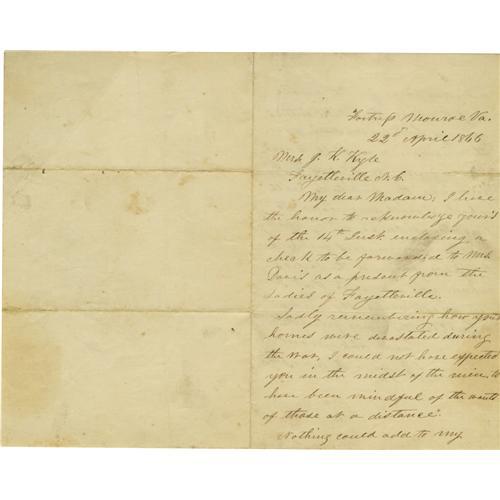 Fortress Monroe Va.
22d April 1866
Mrs J. K. Kyle
Fayetteville N.C.
My dear Madam, I have
the honor to acknowledge yours
of the 14th Inst. enclosing a
check to be forwarded to Mrs
Davis as a present from the
Ladies of Fayetteville.
Sadly remembering how your
homes were devastated during
the War, I could not have expected
you in the midst of the ruin, to
have been mindful of the wants
of those at a distance.
Nothing could add to my